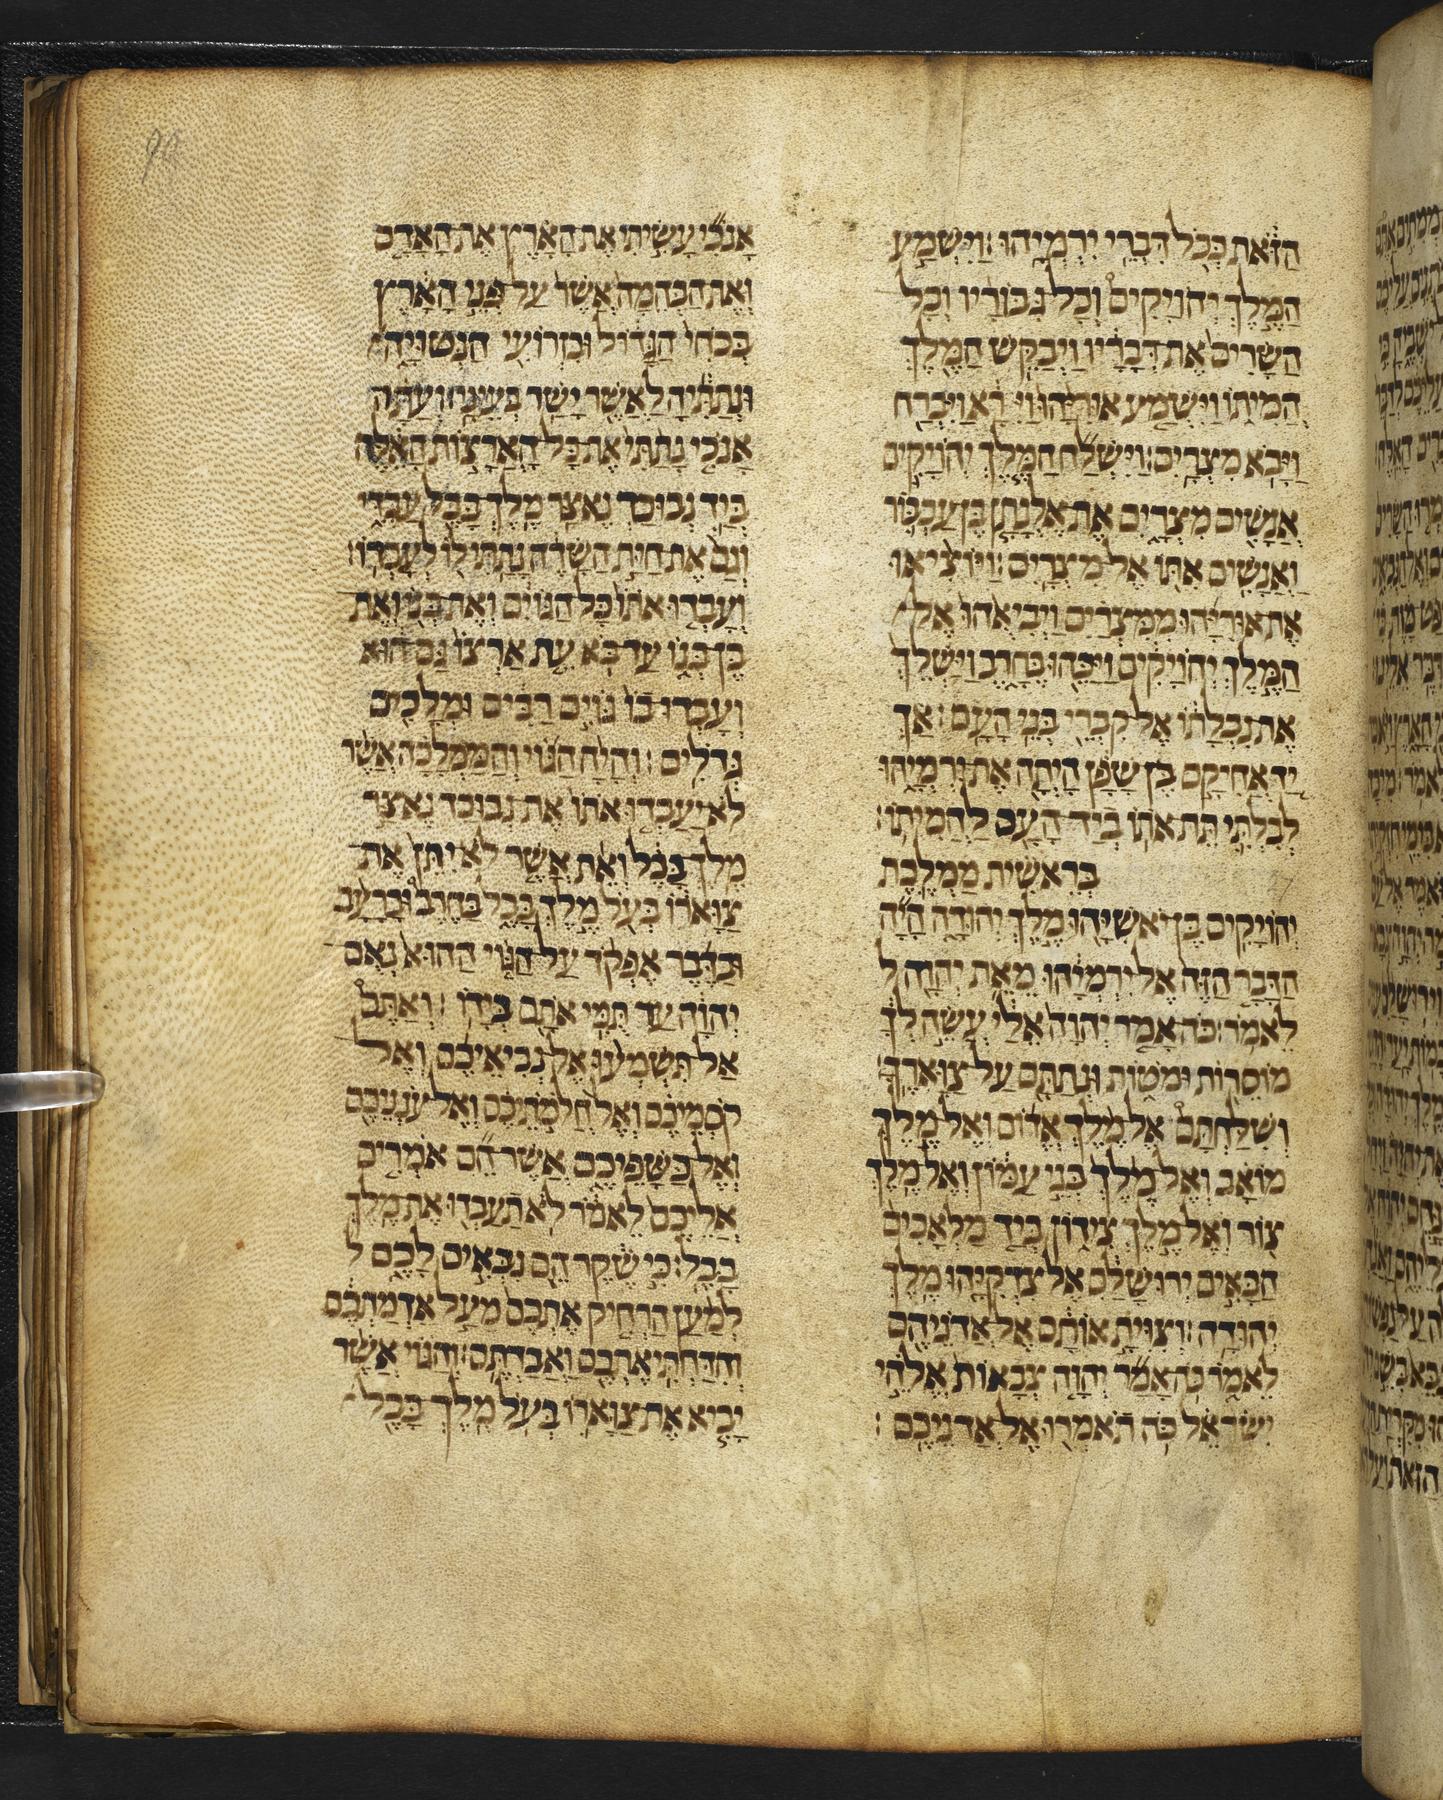 הַזֹּאת כְּכֹל דִּבְרֵי יִרְמְיָהוּ׃ וַיִּשְׁמַע
הַמֶּלֶךְ יְהוֹיָקִים וְכָל גִּבּוֹרָיו וְכָל
הַשָּׂרִים אֶת דְּבָרָיו וַיְבַקֵּשׁ הַמֶּלֶךְ
הֲמִיתוֹ וַיִּשְׁמַע אוּרִיָּהוּ וַיִּרָא וַיִּבְרַח
וַיָּבֹא מִצְרָיִם׃ וַיִּשְׁלַח הַמֶּלֶךְ יְהוֹיָקִים
אֲנָשִׁים מִצְרָיִם אֶת אֶלְנָתָן בֶּן עַכְבּוֹר
וַאֲנָשִׁים אִתּוֹ אֶל מִצְרָיִם׃ וַיּוֹצִיאוּ
אֶת אוּרִיָּהוּ מִמִּצְרַיִם וַיְבִיאֻהוּ אֶל
הַמֶּלֶךְ יְהוֹיָקִים וַיַּכֵּהוּ בֶּחָרֶב וַיַּשְׁלֵךְ
אֶת נִבְלָתוֹ אֶל קִבְרֵי בְּנֵי הָעָם׃ אַךְ
יַד אֲחִיקָם בֶּן שָׁפָן הָיְתָה אֶת יִרְמְיָהוּ
לְבִלְתִּי תֵּת אֹתוֹ בְיַד הָעָם לַהֲמִיתוֹ׃
בְּרֵאשִׁית מַמְלֶכֶת
יְהוֹיָקִים בֶּן יֹאשִׁיָּהוּ מֶלֶךְ יְהוּדָה הָיָה
הַדָּבָר הַזֶּה אֶל יִרְמְיָהוּ מֵאֵת יְהוָה ל
לֵאמֹר׃ כֹּה אָמַר יְהוָה אֵלַי עֲשֵׂה לְךָ
מוֹסֵרוֹת וּמֹטוֹת וּנְתַתָּם עַל צַוָּארֶךָ׃
וְשִׁלַּחְתָּם אֶל מֶלֶךְ אֱדוֹם וְאֶל מֶלֶךְ
מוֹאָב וְאֶל מֶלֶךְ בְּנֵי עַמּוֹן וְאֶל מֶלֶךְ
צוֹר וְאֶל מֶלֶךְ צִידוֹן בְּיַד מַלְאָכִים
הַבָּאִים יְרוּשָׁלַם אֶל צִדְקִיָּהוּ מֶלֶךְ
יְהוּדָה׃ וְצִוִּיתָ אוֹתָם אֶל אֲדֹנֵיהֶם
לֵאמֹר כֹּה אָמַר יְהוָה צְבָאוֹת אֱלֹהֵי
יִשְׂרָאֵל כֹּה תֹאמְרוּ אֶל אֲדֹנֵיכֶם׃
אָנֹכִי עָשִׂיתִי אֶת הָאָרֶץ אֶת הָאָדָם
וְאֶת הַבְּהֵמָה אֲשֶׁר עַל פְּנֵי הָאָרֶץ
בְּכֹחִי הַגָּדוֹל וּבִזְרוֹעִי הַנְּטוּיָה
וּנְתַתִּיהָ לַאֲשֶׁר יָשַׁר בְּעֵינָי׃ וְעַתָּה
אָנֹכִי נָתַתִּי אֶת כָּל הָאֲרָצוֹת הָאֵלֶּה
בְּיַד נְבוּכַד נֶאצַּר מֶלֶךְ בָּבֶל עַבְדִּי
וְגַם אֶת חַיַּת הַשָּׂדֶה נָתַתִּי לוֹ לְעָבְדוֹ׃
וְעָבְדוּ אֹתוֹ כָּל הַגּוֹיִם וְאֶת בְּנוֹ וְאֶת
בֶּן בְּנוֹ עַד בֹּא עֵת אַרְצוֹ גַּם הוּא
וְעָבְדוּ בוֹ גּוֹיִם רַבִּים וּמְלָכִים
גְּדֹלִים׃ וְהָיָה הַגּוֹי וְהַמַּמְלָכָה אֲשֶׁר
לֹא יַעַבְדוּ אֹתוֹ אֶת נְבוּכַד נֶאצַּר
מֶלֶךְ בָּבֶל וְאֵת אֲשֶׁר לֹא יִתֵּן אֶת
צַוָּארוֹ בְּעֹל מֶלֶךְ בָּבֶל בַּחֶרֶב וּבָרָעָב
וּבַדֶּבֶר אֶפְקֹד עַל הַגּוֹי הַהוּא נְאֻם
יְהוָה עַד תֻּמִּי אֹתָם בְּיָדוֹ׃ וְאַתֶּם
אַל תִּשְׁמְעוּ אֶל נְבִיאֵיכֶם וְאֶל
קֹסְמֵיכֶם וְאֶל חֲלֹמֹתֵיכֶם וְאֶל עֹנְנֵיכֶם
וְאֶל כַּשָּׁפֵיכֶם אֲשֶׁר הֵם אֹמְרִים
אֲלֵיכֶם לֵאמֹר לֹא תַעַבְדוּ אֶת מֶלֶךְ
בָּבֶל׃ כִּי שֶׁקֶר הֵם נִבְּאִים לָכֶם ל
לְמַעַן הַרְחִיק אֶתְכֶם מֵעַל אַדְמַתְכֶם
וְהִדַּחְתִּי אֶתְכֶם וַאֲבַדְתֶּם׃ וְהַגּוֹי אֲשֶׁר
יָבִיא אֶת צַוָּארוֹ בְּעֹל מֶלֶךְ בָּבֶל